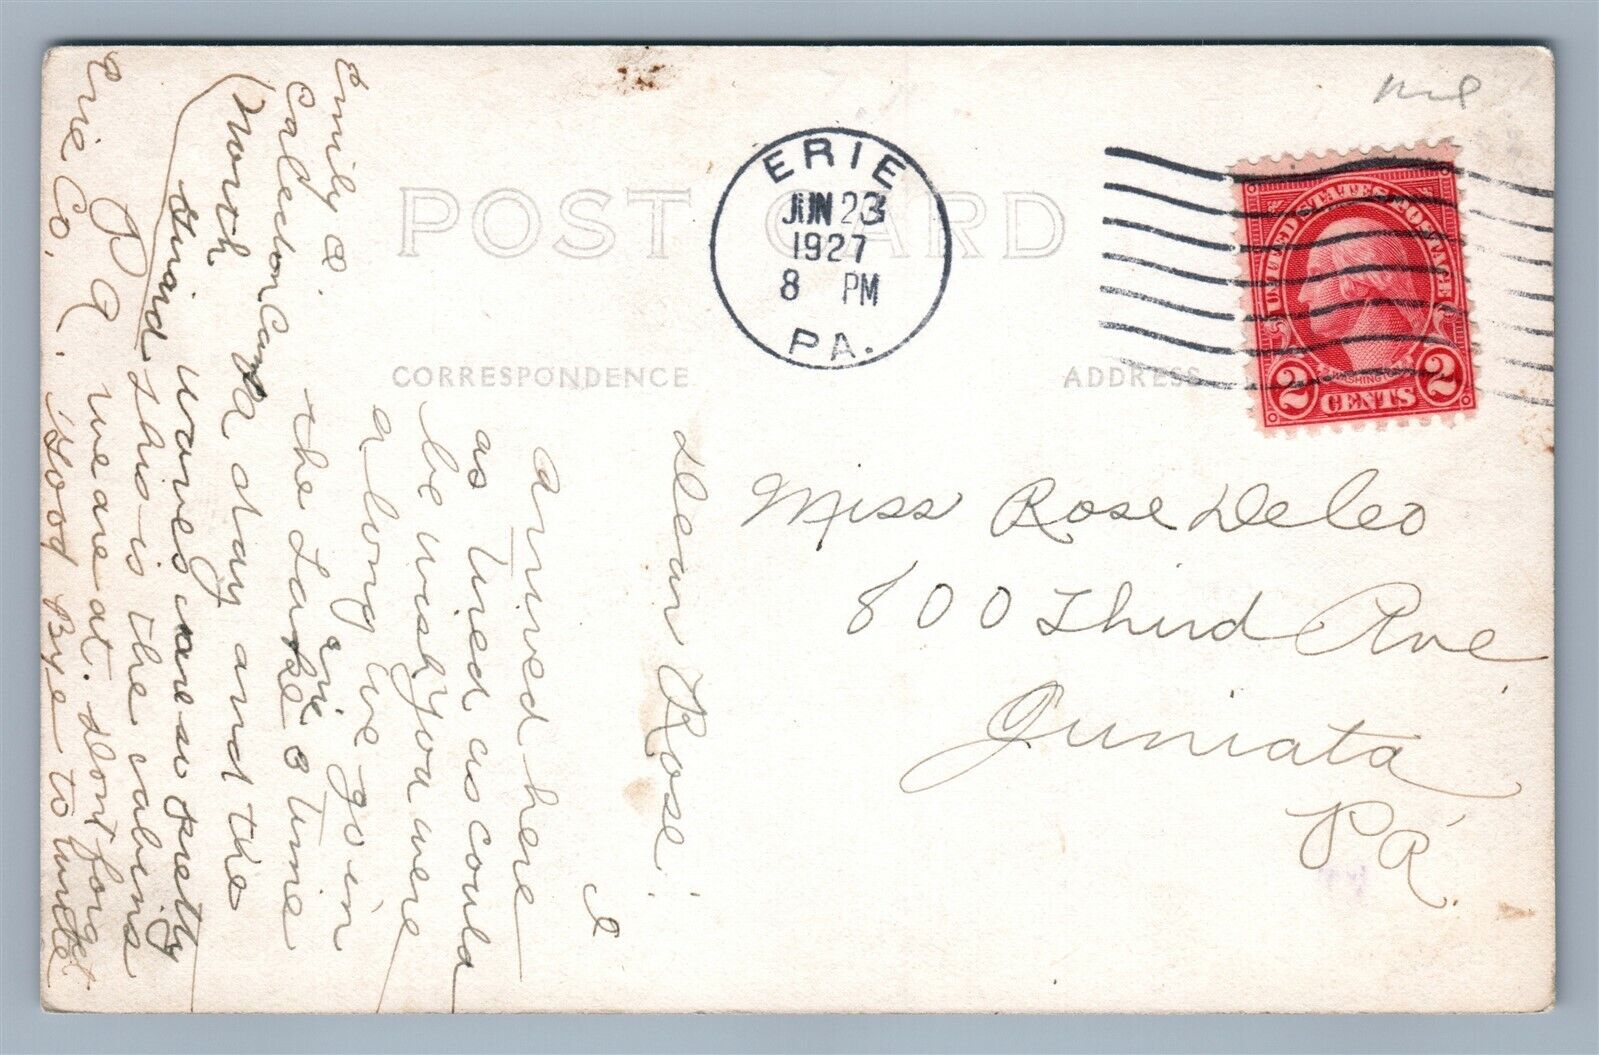 POST CARD
CORRESPONDENCE
ADDRESS
ERIE
JUN 23
1927
8 PM
PA.
UNITED STATES POSTAGE
WASHINGTON
2 CENTS 2
Miss Rose DeLeo
800 Third Ave
Juniata
PA.
Dear Rose:
I
arrived here
as tired as could
be wish you were
along we go in
the Lake Erie 3 time
a day and the
waves are so pretty
this is the cabins
we are at. dont forget
Good Bye to write
Emily
Caledon Camp
(North
Guard
PA
Erie Co.